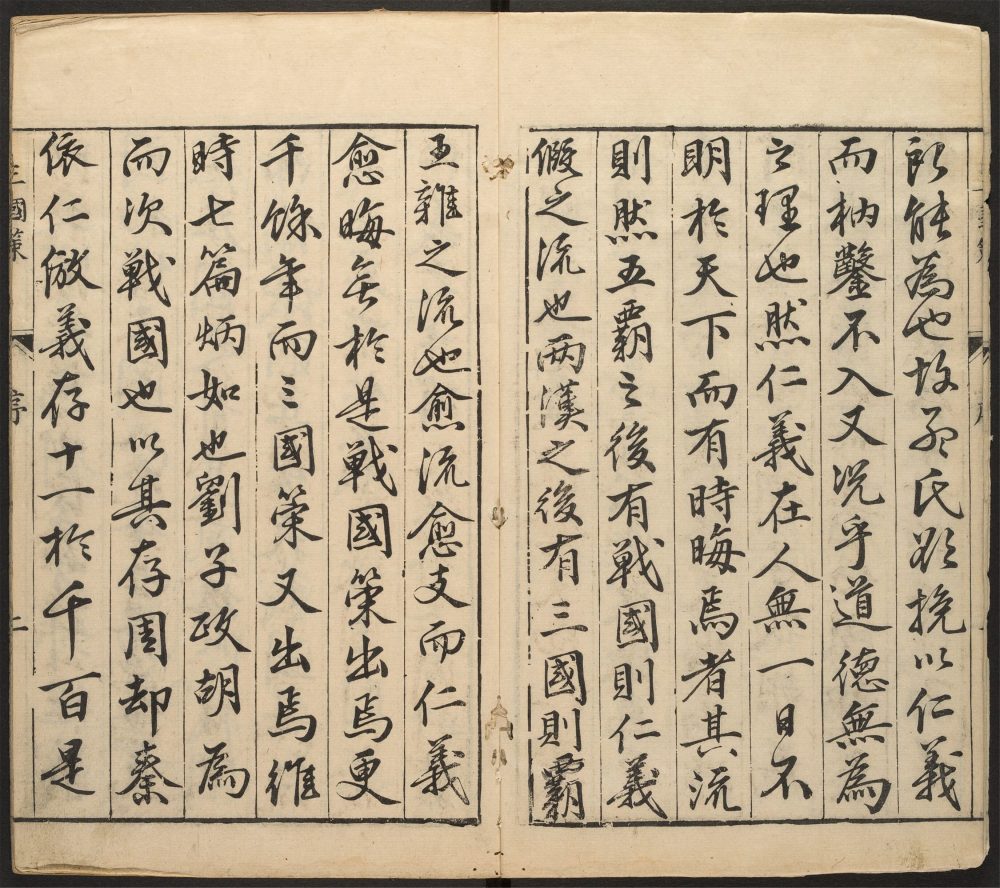 所能為也故孟氏欲挽以仁義
而枘鑿不入又况乎道德無為
之理也然仁義在人無一日不
明於天下而有時晦焉者其流
則然五霸之後有戰國則仁義
假之流也两漢之後有三國則霸
王雜之流也愈流愈支而仁義
愈晦矣於是戰國策出焉更
千餘年而三國策又出焉維
時七篇炳如也劉子政胡為
而次戰國也以其存周却秦
依仁倣義存十一於千百是
三國策
序
二